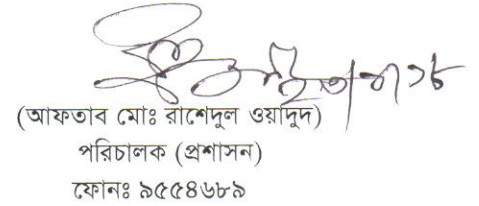 (আফতাব মোঃ রাশেদুল ওয়াদুদ)
পরিচালক (প্রশাসন)
ফোনঃ ৯৫৫৪৬৮৯